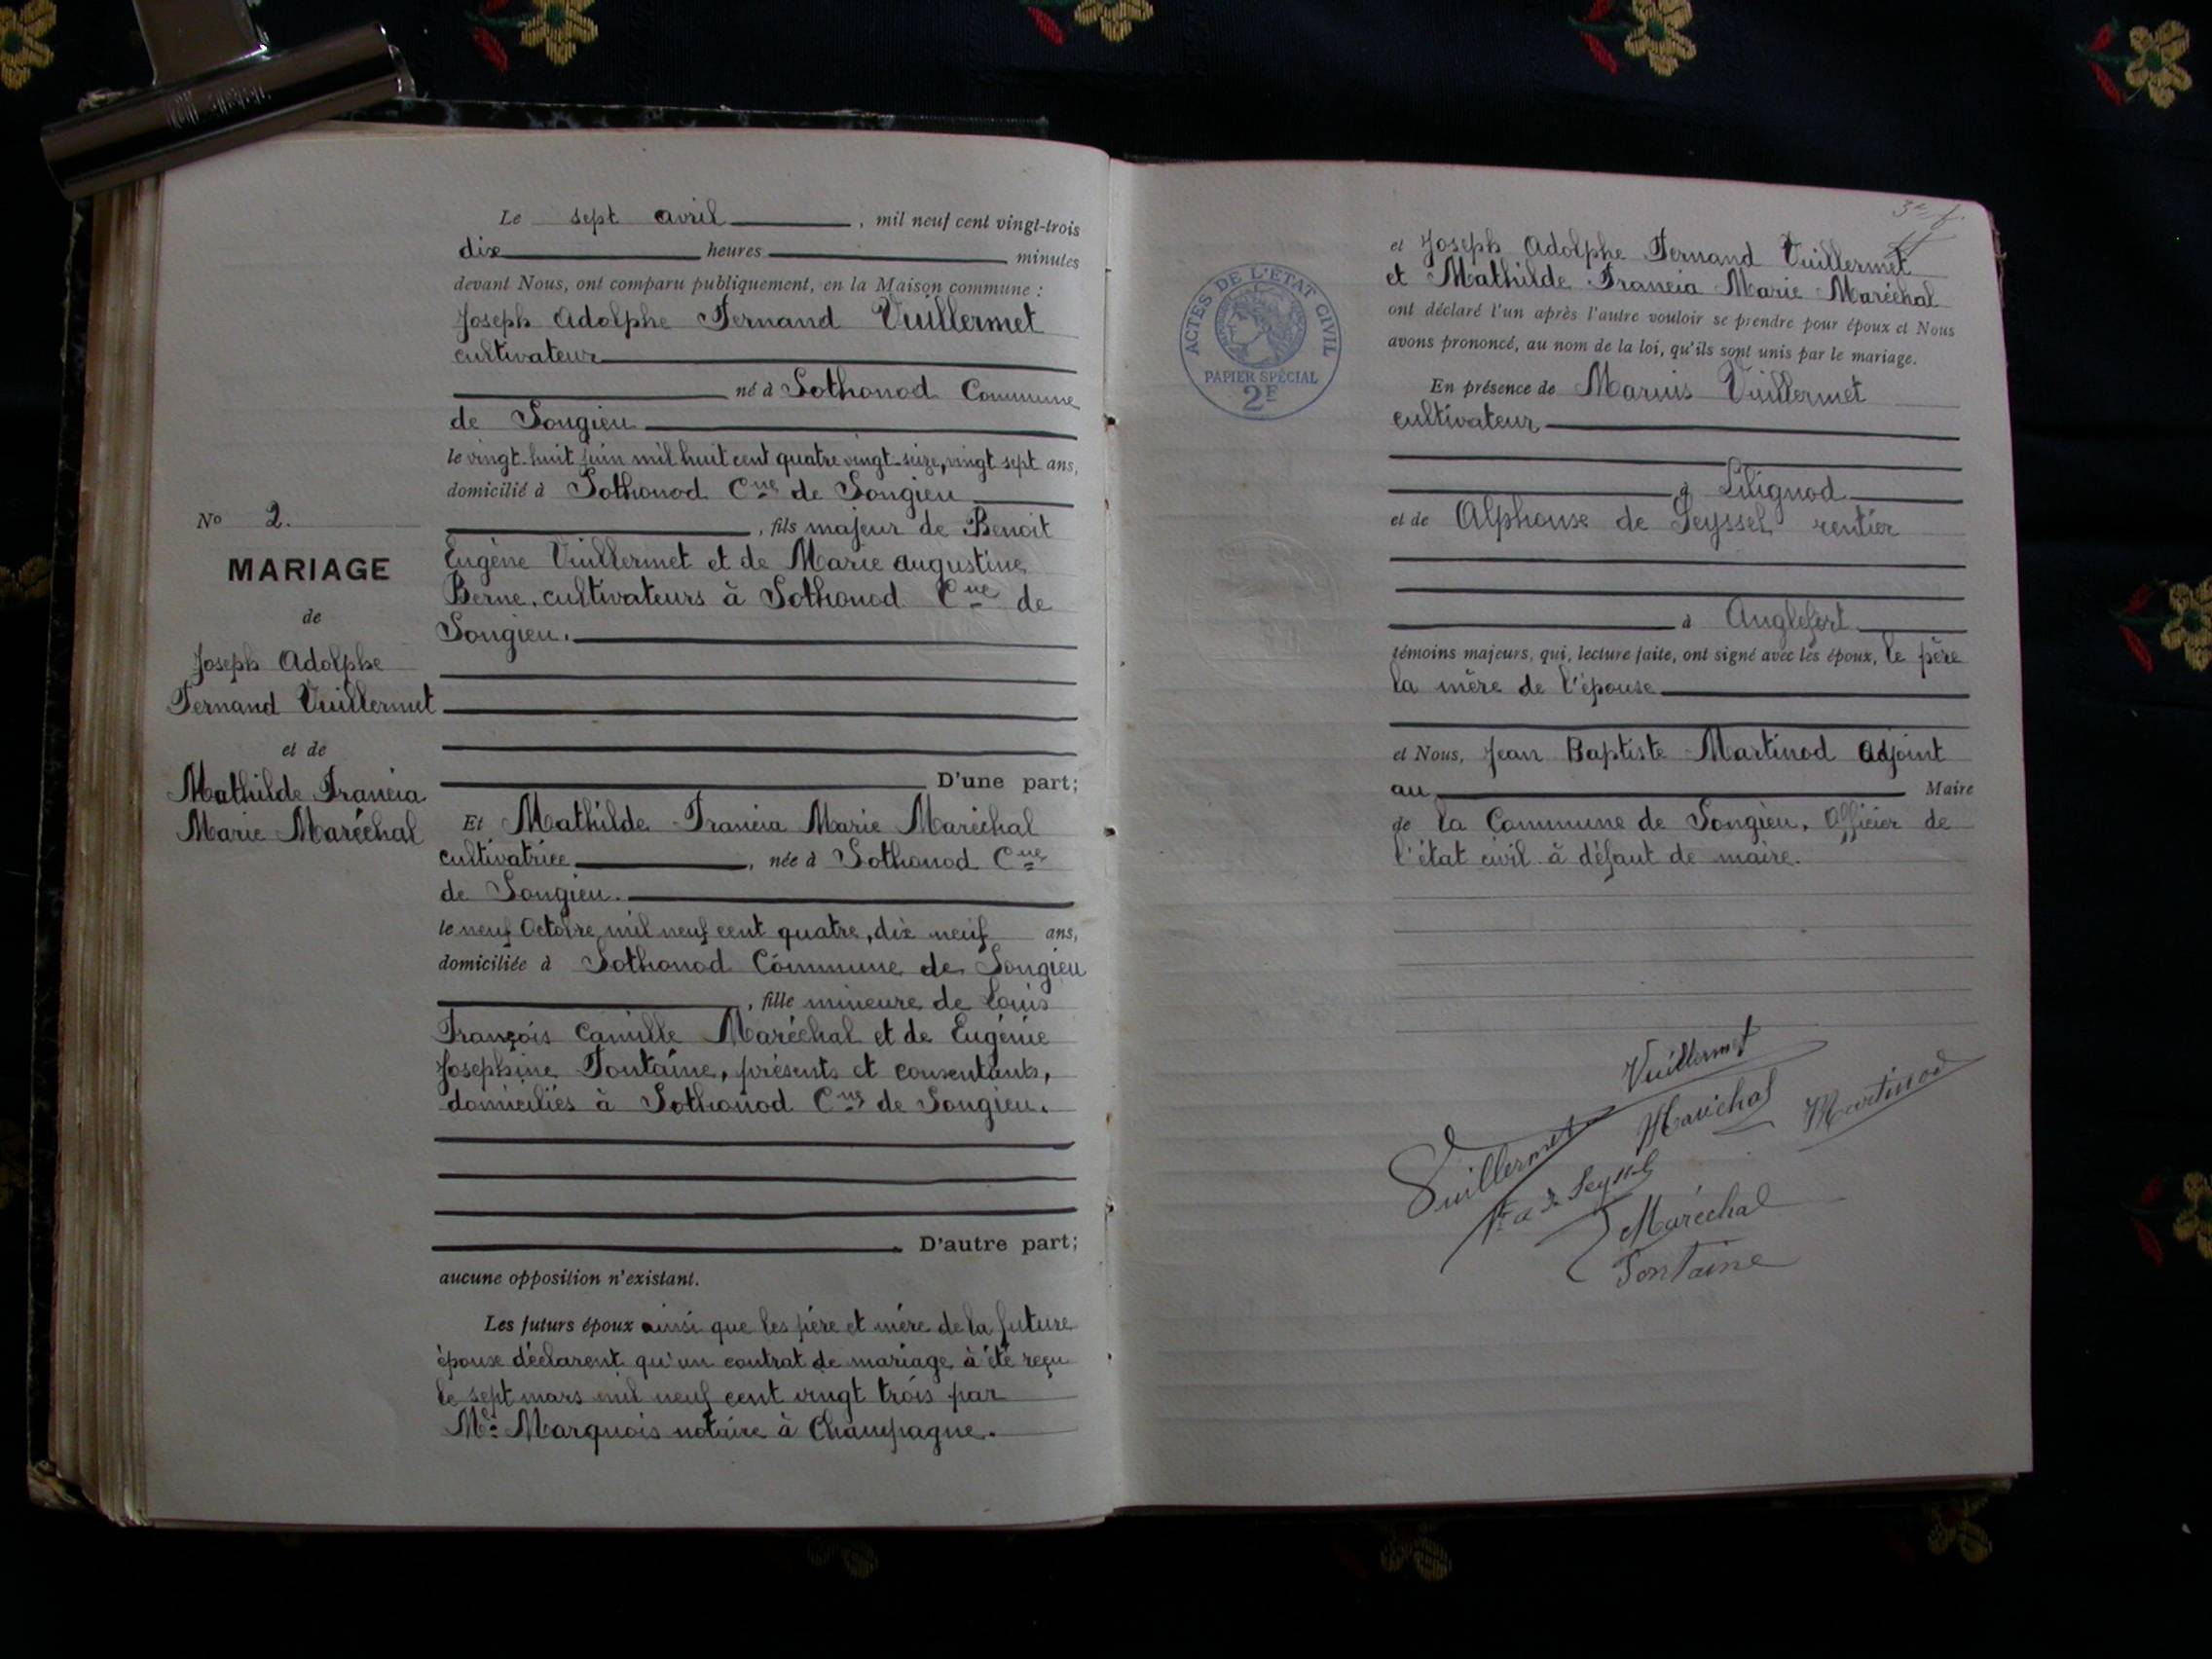 Le sept avril , mil neuf cent vingt-trois
dix heures minutes
devant Nous, ont comparu publiquement, en la Maison commune :
Joseph Adolphe Fernand Vuillermet
cultivateur
né à Sothonod Commune
de Songieu
le vingt-huit juin mil huit cent quatre vingt-seize, vingt sept ans,
domicilié à Sothonod Cne de Songieu
, fils majeur de Benoit
Eugène Vuillermet et de Marie augustine
Berne, cultivateurs à Sothonod Cne de
Songieu.
D'une part;
No 2.
MARIAGE
de
Joseph Adolphe
Fernand Vuillermet
et de
Mathilde Francia
Marie Maréchal
Et Mathilde Francia Marie Maréchal
cultivatrice , née à Sothonod Cne
de Songieu.
le neuf Octobre mil neuf cent quatre, dix neuf ans,
domiciliée à Sothonod Commune de Songieu
, fille mineure de Louis
François Camille Maréchal et de Eugénie
Josephine Fontaine, présents et consentants,
domiciliés à Sothonod Cne de Songieu.
D'autre part;
aucune opposition n'existant.
Les futurs époux ainsi que les père et mère de la future
épouse déclarent qu'un contrat de mariage à été reçu
le sept mars mil neuf cent vingt trois par
Me Marquois notaire à Champagne.
ACTES DE L'ÉTAT CIVIL
PAPIER SPÉCIAL
2F
et Joseph Adolphe Fernand Vuillermet
et Mathilde Francia Marie Maréchal
ont déclaré l'un après l'autre vouloir se prendre pour époux et Nous
avons prononcé, au nom de la loi, qu'ils sont unis par le mariage.
En présence de Marius Vuillermet
cultivateur
à Lilignod
et de Alphonse de Seyssel rentier
à Anglefort
témoins majeurs, qui, lecture faite, ont signé avec les époux, le père
la mère de l'épouse
et Nous, Jean Baptiste Martinod Adjoint
au Maire
de la Commune de Songieu, Officier de
l'état civil à défaut de maire.
Vuillermet
Maréchal
Martinod
Vuillermet
de Seyssel
Maréchal
Fontaine